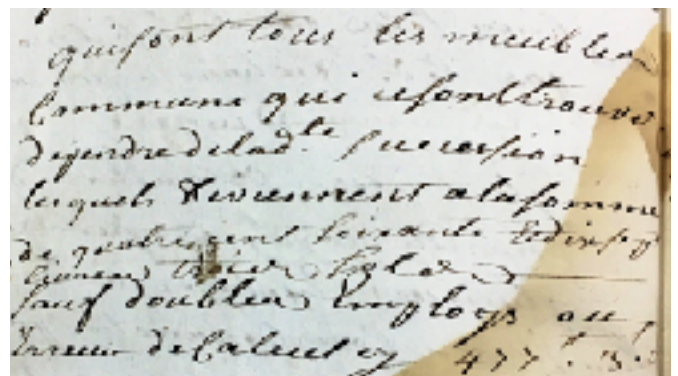 qui sont tous les meubles
Commune qui se sont trouvés
dependre de lad.te succession
lesquels reviennent a la somme
de quatre cent soixante et dix sept
sauf doubles Employs ou
Erreur de Calcul cy 477